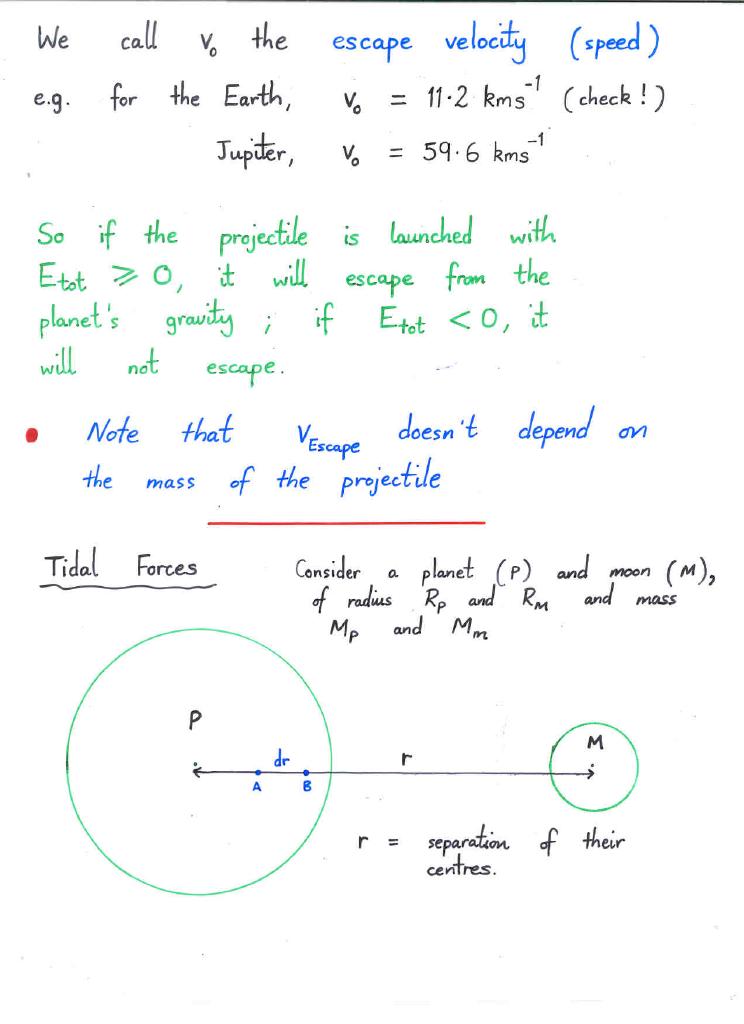 We call v₀ the escape velocity (speed)
e.g. for the Earth, v₀ = 11·2 kms⁻¹ (check!)
Jupiter, v₀ = 59·6 kms⁻¹
So if the projectile is launched with
E_tot ⩾ 0, it will escape from the
planet's gravity ; if E_tot < 0, it
will not escape.
• Note that v_Escape doesn't depend on
the mass of the projectile
Tidal Forces
Consider a planet (P) and moon (M),
of radius R_P and R_M and mass
M_P and M_m
P
M
dr
r
A B
r = separation of their
centres.